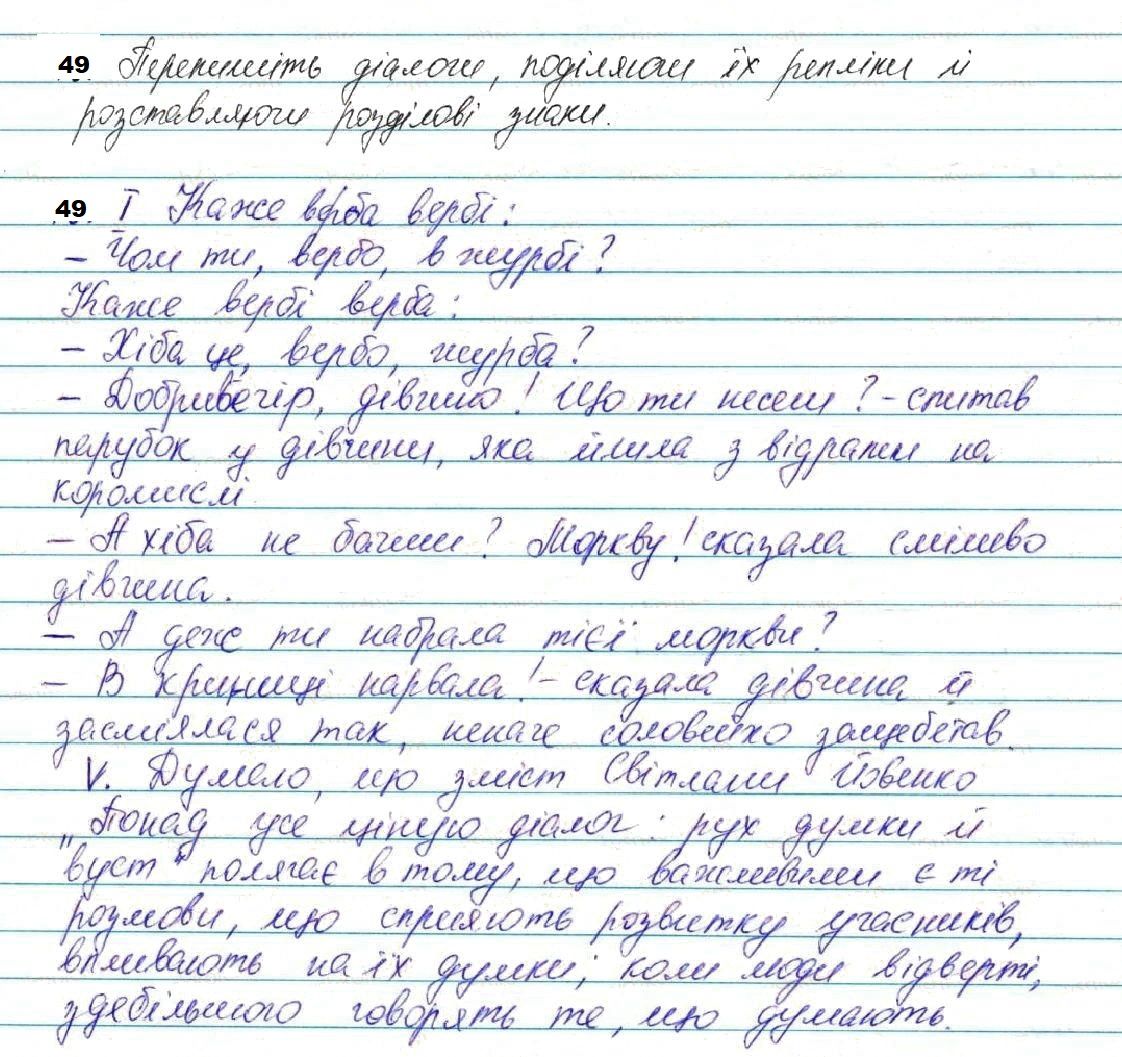 49 Перепишіть діалоги, поділяючи їх репліки й
розставляючи розділові знаки.
49. І Каже верба вербі:
– Чом ти, вербо, в журбі?
Каже вербі верба:
– Хіба це, вербо, журба?
– Добривечір, дівчино! Що ти несеш? – спитав
парубок у дівчини, яка йшла з відрами на
коромислі.
– А хіба не бачиш? Моркву! сказала сміливо
дівчина.
– А деж ти набрала тієї моркви?
– В криниці нарвала! – сказала дівчина й
засміялася так, неначе соловейко защебетав.
V. Думаю, що зміст Світлани Йовенко
„Понад усе ціную діалог: рух думки й
вуст“ полягає в тому, що важливими є ті
розмови, що сприяють розвитку учасників,
впливають на їх думки; коли люди відверті,
здебільшого говорять те, що думають.